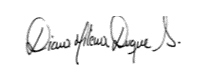 Diana Milena Duque S.